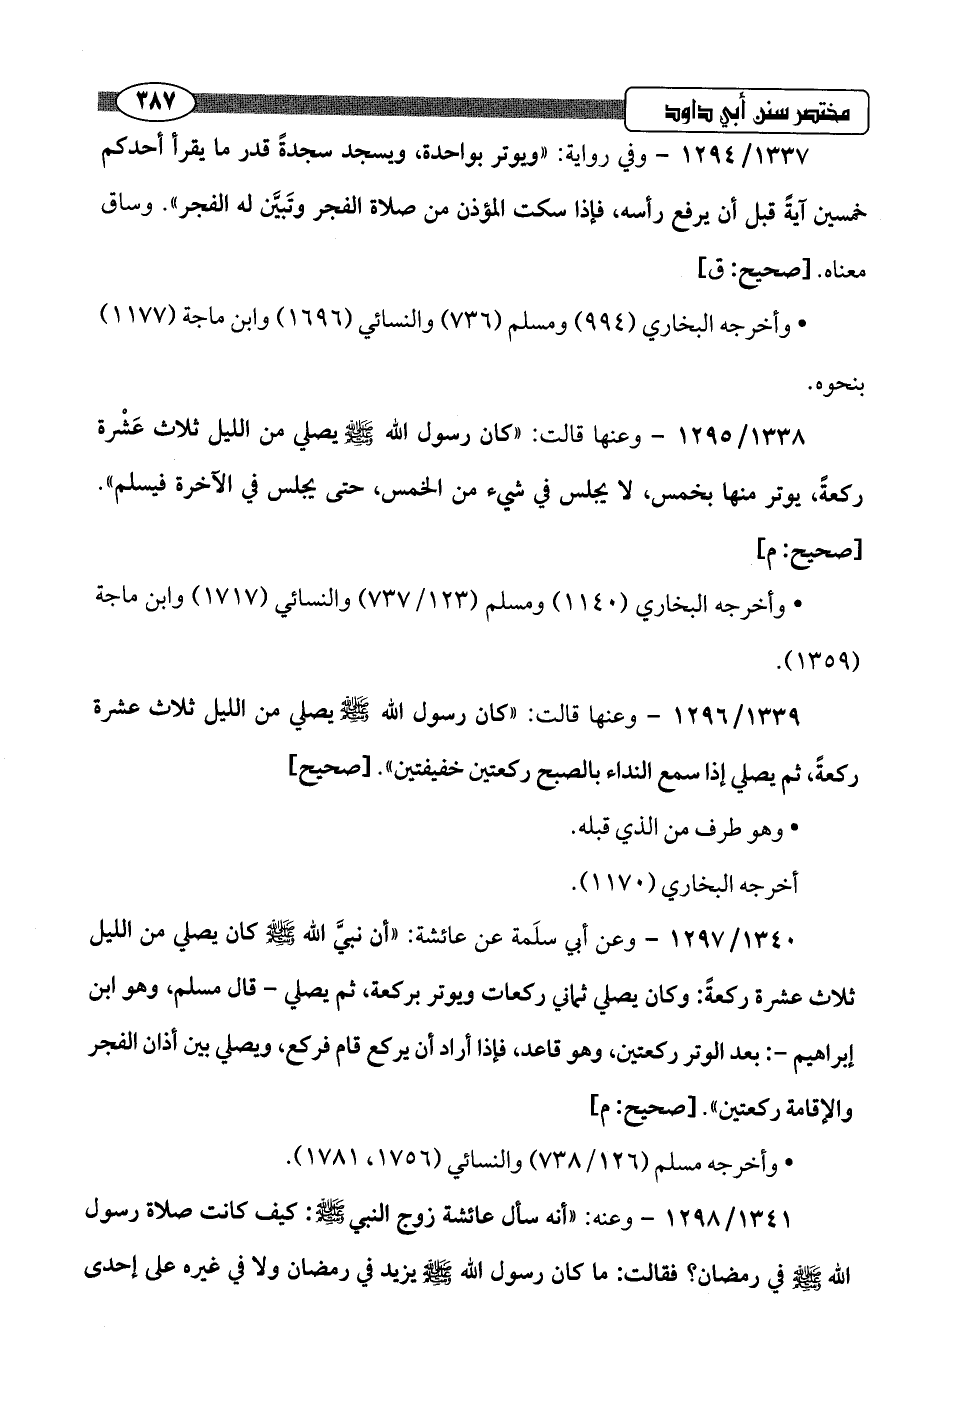 مختصر سنن أبي داود ٣٨٧
١٢٩٤/١٣٣٧ - وفي رواية: «ويوتر بواحدة، ويسجد سجدةً قدر ما يقرأ أحدكم
خمسين آيةً قبل أن يرفع رأسه، فإذا سكت المؤذن من صلاة الفجر وتَبيَّن له الفجر». وساق
معناه. [صحيح: ق]
• وأخرجه البخاري (٩٩٤) ومسلم (٧٣٦) والنسائي (١٦٩٦) وابن ماجة (١١٧٧)
بنحوه.
١٢٩٥/١٣٣٨ - وعنها قالت: «كان رسول الله ﷺ يصلي من الليل ثلاث عَشْرة
ركعةً، يوتر منها بخمس، لا يجلس في شيء من الخمس، حتى يجلس في الآخرة فيسلم».
[صحيح: م]
• وأخرجه البخاري (١١٤٠) ومسلم (٧٣٧/١٢٣) والنسائي (١٧١٧) وابن ماجة
(١٣٥٩).
١٢٩٦/١٣٣٩ - وعنها قالت: «كان رسول الله ﷺ يصلي من الليل ثلاث عشرة
ركعةً، ثم يصلي إذا سمع النداء بالصبح ركعتين خفيفتين». [صحيح]
• وهو طرف من الذي قبله.
أخرجه البخاري (١١٧٠).
١٢٩٧/١٣٤٠ - وعن أبي سلَمة عن عائشة: «أن نبيَّ الله ﷺ كان يصلي من الليل
ثلاث عشرة ركعةً: وكان يصلي ثماني ركعات ويوتر بركعة، ثم يصلي - قال مسلم، وهو ابن
إبراهيم -: بعد الوتر ركعتين، وهو قاعد، فإذا أراد أن يركع قام فركع، ويصلي بين أذان الفجر
والإقامة ركعتين». [صحيح: م]
• وأخرجه مسلم (٧٣٨/١٢٦) والنسائي (١٧٥٦، ١٧٨١).
١٢٩٨/١٣٤١ - وعنه: «أنه سأل عائشة زوج النبي ﷺ: كيف كانت صلاة رسول
الله ﷺ في رمضان؟ فقالت: ما كان رسول الله ﷺ يزيد في رمضان ولا في غيره على إحدى